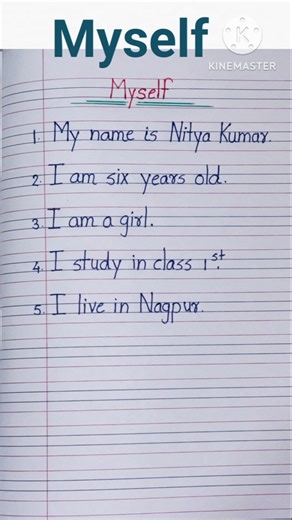 Myself
KINEMASTER
Myself
1. My name is Nitya Kumar.
2. I am six years old.
3. I am a girl.
4. I study in class 1st.
5. I live in Nagpur.